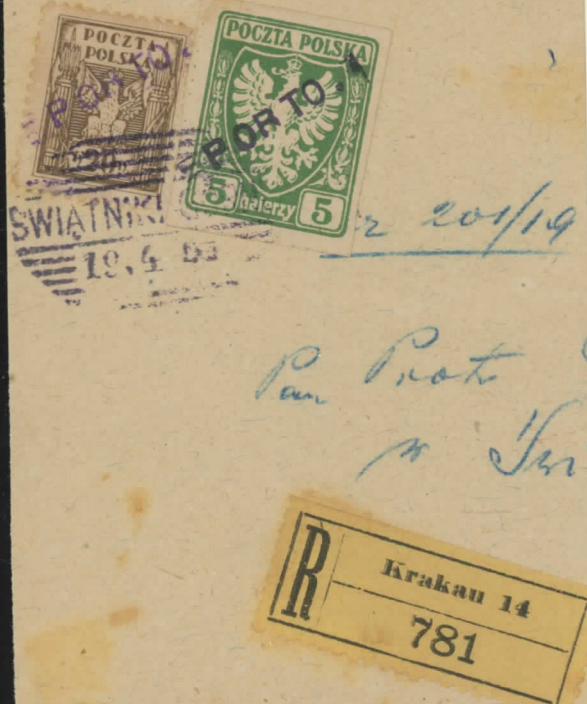 POCZTA
POLSKA
PORTO.
20
POCZTA POLSKA
PORTO.
5 halerzy 5
ŚWIĄTNIKI
19.4
201/19
Pan Piotr
w
R
Krakau 14
781